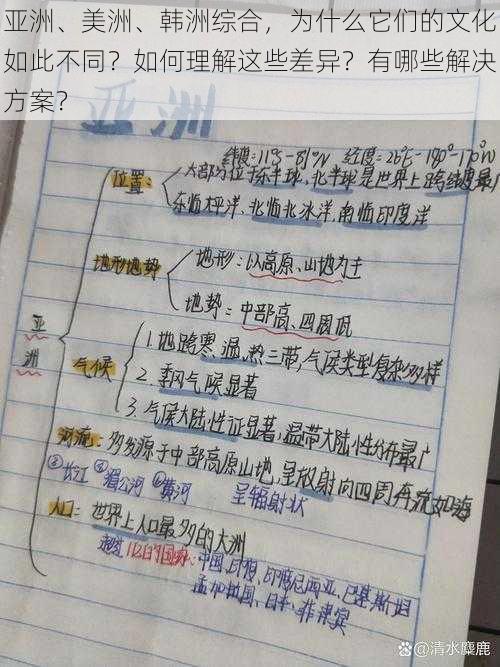 亚洲、美洲、韩洲综合，为什么它们的文化
如此不同？如何理解这些差异？有哪些解决
方案？
亚洲
纬度:11°S-81°N 经度:26°E-180°-170°W
位置: 大部分位于东半球,北半球是世界上跨纬度最广
东临太平洋,北临北冰洋,南临印度洋
地形地势
地形:以高原、山地为主
地势:中部高、四周低
亚洲
气候
1.地跨寒、温、热三带,气候类型复杂多样
2.季风气候显著
3.气候大陆性征显著,温带大陆性分布最广
河流:多发源于中部高原山地,呈放射向四周奔流如海
①长江 ②湄公河 ③黄河 呈辐射状
人口: 世界上人口最多的大洲
超过1亿的国家:中国、印度、印度尼西亚、巴基斯坦
孟加拉国、日本、菲律宾
@清水麋鹿